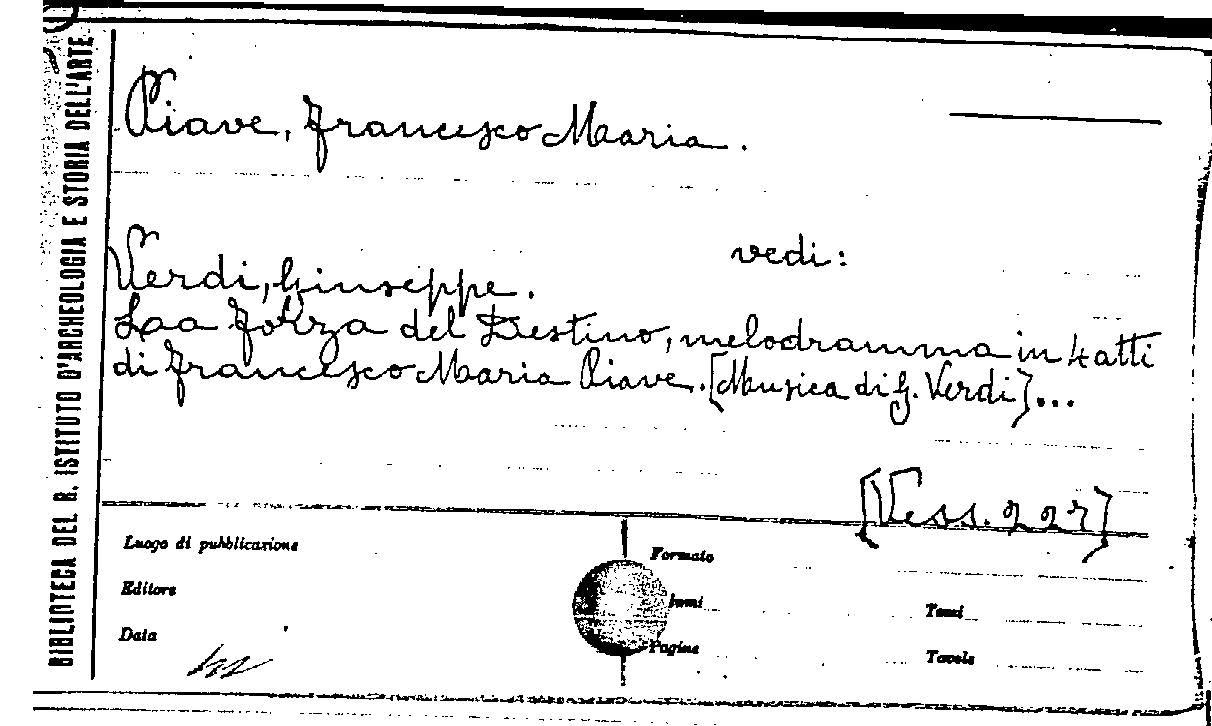 BIBLIOTECA DEL R. ISTITUTO D'ARCHEOLOGIA E STORIA DELL'ARTE
Piave, Francesco Maria.
vedi:
Verdi, Giuseppe.
Laa Forza del Destino, melodramma in 4 atti
di Francesco Maria Piave. [Musica di G. Verdi]...
[Vess. 227]
Luogo di pubblicazione
Formato
Editore
Tomi
Data
Pagine
Tavole